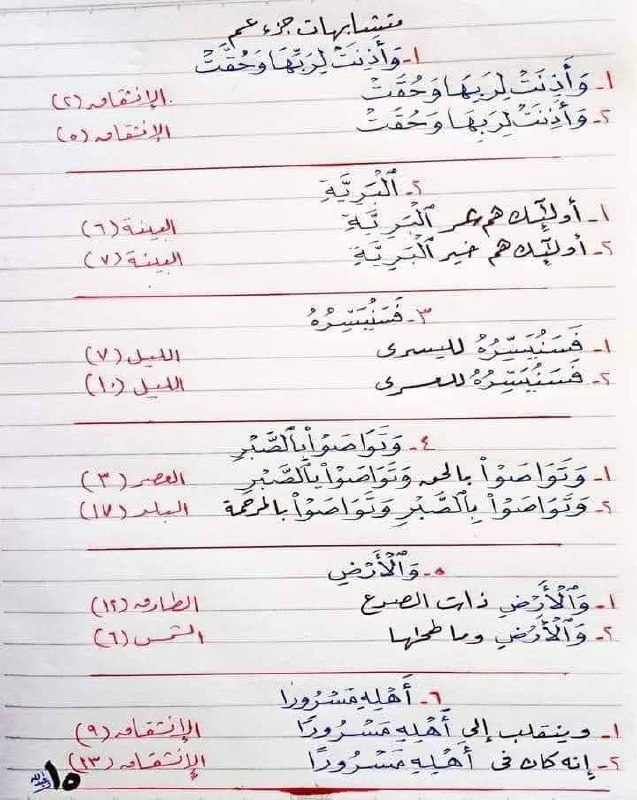 متشابهات جزء عم
١- وَأَذِنَتْ لِرَبِّهَا وَحُقَّتْ
١- وَأَذِنَتْ لِرَبِّهَا وَحُقَّتْ الإنشقاق (٢)
٢- وَأَذِنَتْ لِرَبِّهَا وَحُقَّتْ الإنشقاق (٥)
٢- ٱلْبَرِيَّةِ
١- أولٰٓئك هم شر ٱلْبَرِيَّةِ البينة (٦)
٢- أولٰٓئك هم خير ٱلْبَرِيَّةِ البينة (٧)
٣- فَسَنُيَسِّرُهُ
١- فَسَنُيَسِّرُهُ لليسرى الليل (٧)
٢- فَسَنُيَسِّرُهُ للعسرى الليل (١٠)
٤- وَتَوَاصَوْا۟ بِٱلصَّبْرِ
١- وَتَوَاصَوْا۟ بالحق وَتَوَاصَوْا۟ بِٱلصَّبْرِ العصر (٣)
٢- وَتَوَاصَوْا۟ بِٱلصَّبْرِ وَتَوَاصَوْا۟ بالمرحمة البلد (١٧)
٥- وَٱلْأَرْضِ
١- وَٱلْأَرْضِ ذات الصدع الطارق (١٢)
٢- وَٱلْأَرْضِ وما طحاها الشمس (٦)
٦- أَهْلِهِ مَسْرُورًا
١- وينقلب إلى أَهْلِهِ مَسْرُورًا الإنشقاق (٩)
٢- إنه كان فى أَهْلِهِ مَسْرُورًا الإنشقاق (١٣)
١٥